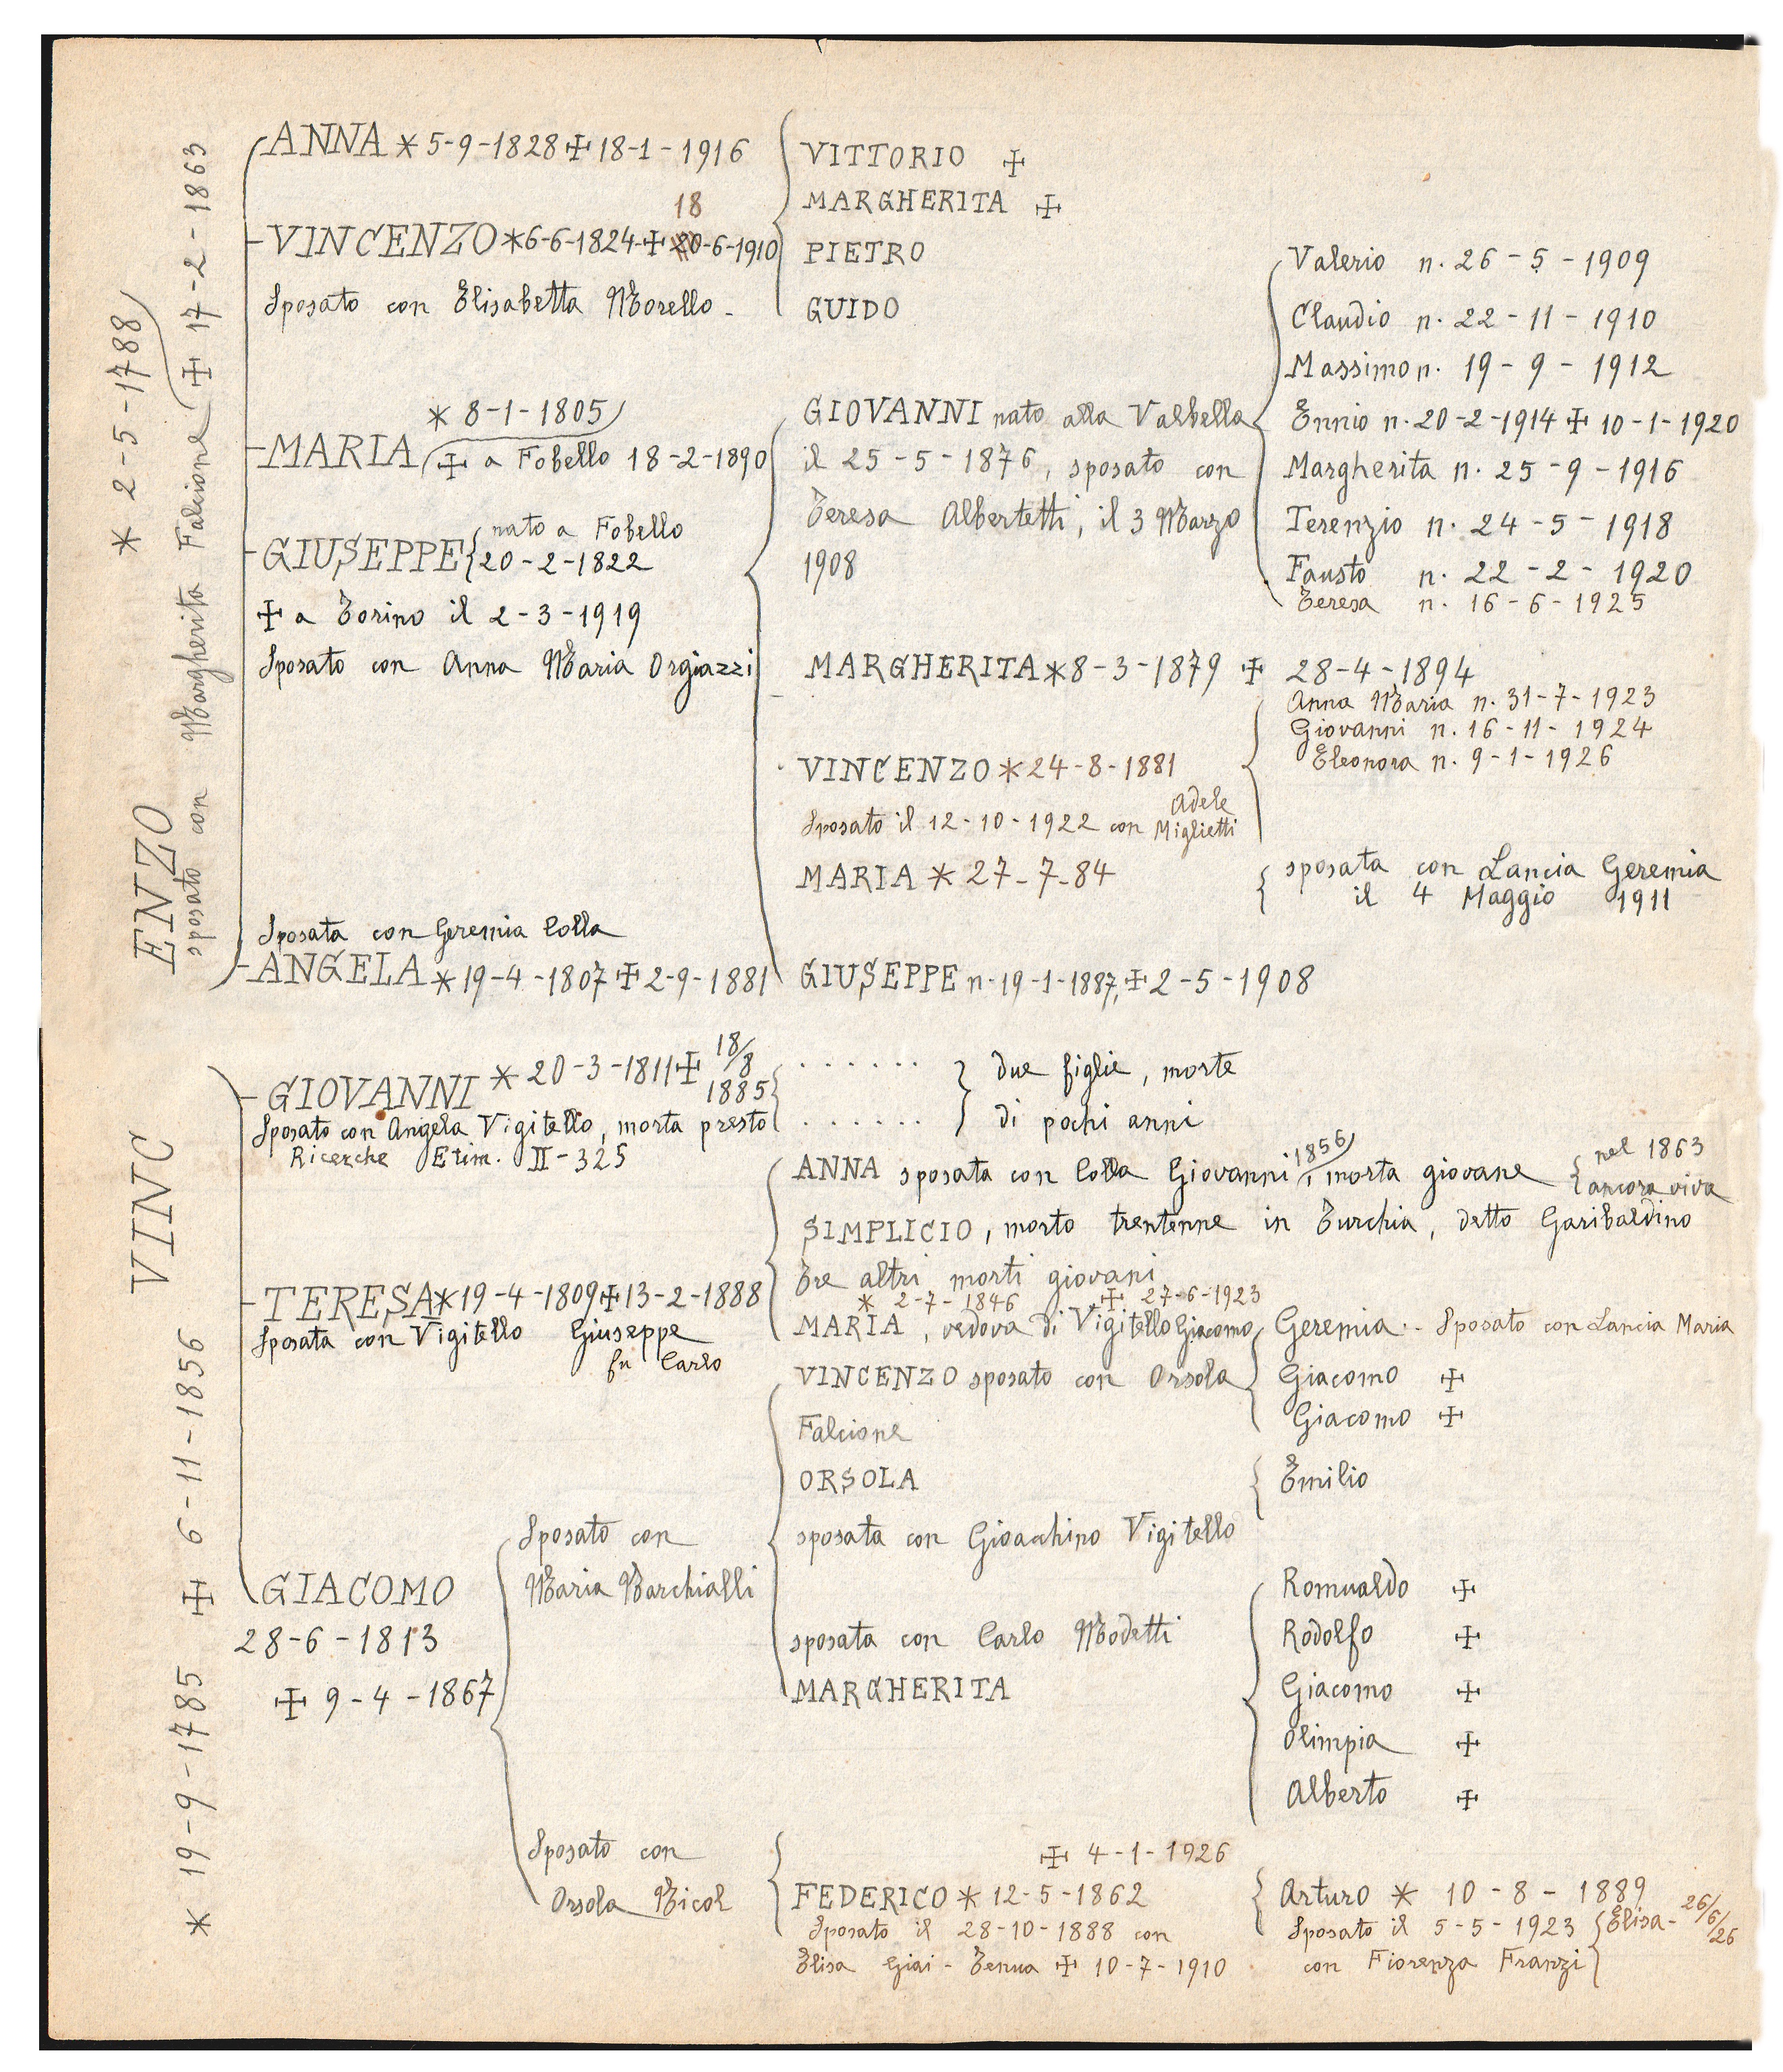 VINCENZO
* 19-9-1785 ✠ 6-11-1856
sposato con Margherita Falcione
* 2-5-1788
✠ 17-2-1863
ANNA * 5-9-1828 ✠ 18-1-1916
18
VINCENZO * 6-6-1824 - ✠ 20-6-1910
Sposato con Elisabetta Morello -
VITTORIO ✠
MARGHERITA ✠
PIETRO
GUIDO
* 8-1-1805
MARIA ✠ a Fobello 18-2-1890
GIUSEPPE { nato a Fobello
20-2-1822
✠ a Torino il 2-3-1919
Sposato con Anna Maria Orgiazzi
GIOVANNI nato alla Valbella
il 25-5-1876, sposato con
Teresa Albertetti, il 3 Marzo
1908
Valerio n. 26-5-1909
Claudio n. 22-11-1910
Massimo n. 19-9-1912
Ennio n. 20-2-1914 ✠ 10-1-1920
Margherita n. 25-9-1916
Terenzio n. 24-5-1918
Fausto n. 22-2-1920
Teresa n. 16-6-1925
MARGHERITA * 8-3-1879 ✠ 28-4-1894
VINCENZO * 24-8-1881
Adele
Sposato il 12-10-1922 con Miglietti
Anna Maria n. 31-7-1923
Giovanni n. 16-11-1924
Eleonora n. 9-1-1926
MARIA * 27-7-84
sposata con Lancia Geremia
il 4 Maggio 1911
Sposata con Geremia Colla
ANGELA * 19-4-1807 ✠ 2-9-1881
GIUSEPPE n. 19-1-1887, ✠ 2-5-1908
GIOVANNI * 20-3-1811 ✠ 18/8
1885
Sposato con Angela Vigitello, morta presto
Ricerche Etim. II-325
. . . . . . . } due figlie, morte
. . . . . . . } di pochi anni
TERESA * 19-4-1809 ✠ 13-2-1888
Sposata con Vigitello Giuseppe
fu Carlo
ANNA sposata con Colla Giovanni, 1856 morta giovane { nel 1863
ancora viva
SIMPLICIO, morto trentenne in Turchia, detto Garibaldino
Tre altri morti giovani
* 2-7-1846 ✠ 27-6-1923
MARIA, vedova di Vigitello Giacomo
Geremia - Sposato con Lancia Maria
Giacomo ✠
Giacomo ✠
GIACOMO
28-6-1813
✠ 9-4-1867
Sposato con
Maria Marchialli
VINCENZO sposato con Orsola
Falcione
ORSOLA
sposata con Gioachino Vigitello
Emilio
sposata con Carlo Modetti
MARGHERITA
Romualdo ✠
Rodolfo ✠
Giacomo ✠
Olimpia ✠
Alberto ✠
Sposato con
Orsola Micol
✠ 4-1-1926
FEDERICO * 12-5-1862
Sposato il 28-10-1888 con
Elisa Giai - ✠ 10-7-1910
Arturo * 10-8-1889
Sposato il 5-5-1923 { Elisa - 26/6/26
con Fiorenza Franzi